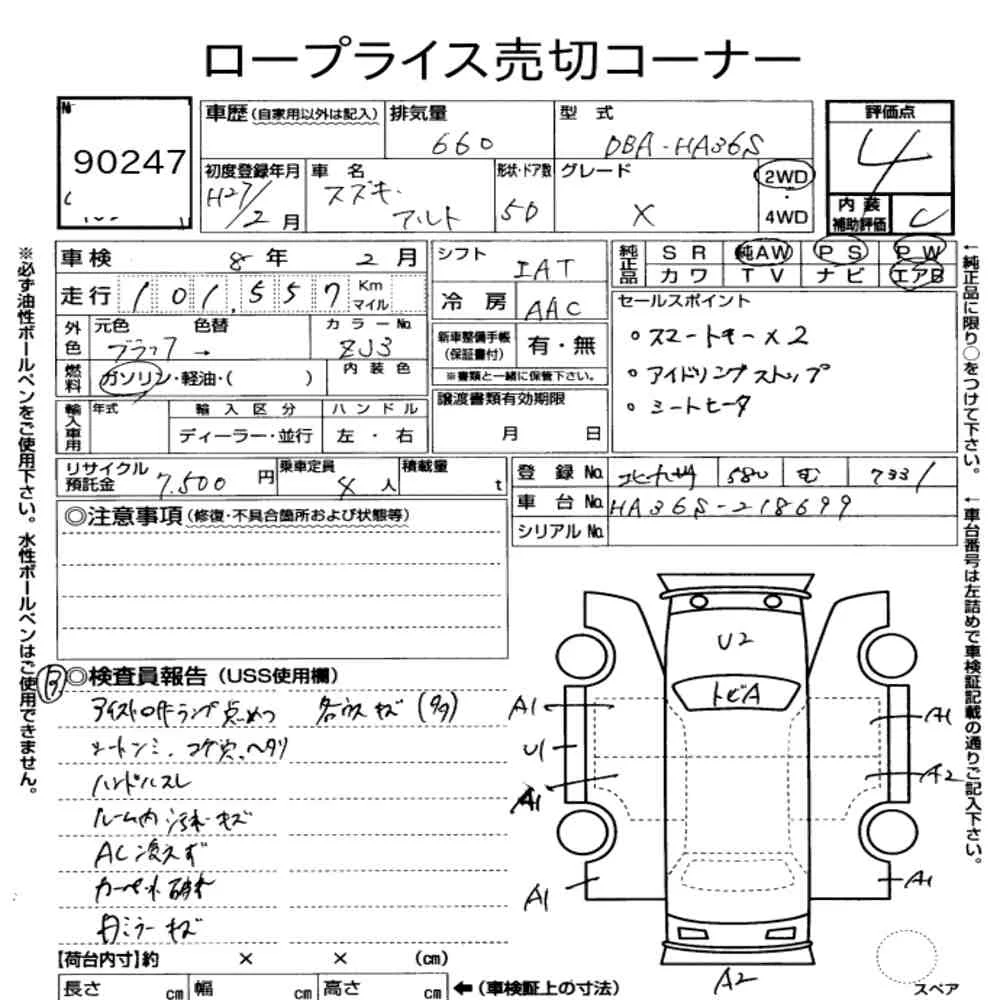 ロープライス売切コーナー
№
90247
車歴 (自家用以外は記入)
排気量
660
型式
DBA-HA36S
評価点
4
初度登録年月
H27/2月
車名
スズキ・
アルト
形状・ドア数
5D
グレード
X
2WD
4WD
内装
補助評価
C
車検 8年 2月
シフト
IAT
純正品
SR 純AW PS PW
カワ TV ナビ エアB
走行 101,557 Km マイル
冷房
AAC
セールスポイント
○スマートキー×2
○アイドリングストップ
○シートヒータ
外色
元色 ブラック→
色替
カラーNo.
ZJ3
新車整備手帳
(保証書付)
有・無
※書類と一緒に保管下さい。
燃料
ガソリン・軽油・( )
内装色
譲渡書類有効期限
月 日
輸入車用
年式
輸入区分
ディーラー・並行
ハンドル
左・右
リサイクル
預託金
7,500円
乗車定員
4人
積載量
t
登録No. 北九州 580 む 7331
車台No. HA36S-218699
シリアルNo.
◎注意事項 (修復・不具合箇所および状態等)
※必ず油性ボールペンをご使用下さい。水性ボールペンはご使用できません。
↑純正品に限り○をつけて下さい。
↑車台番号は左詰めで車検証記載の通りご記入下さい。
◎検査員報告 (USS使用欄)
各ウスキズ(多)
シートシミ、コゲ穴、ヘタリ
ハンドルスレ
ルーム内汚れ・キズ
AC冷えず
ミラーキズ
U2
トビA
A1
U1
A1
A1
A1
A2
A1
A2
【荷台内寸】約 × × (cm)
長さ cm 幅 cm 高さ cm ←(車検証上の寸法)
スペア